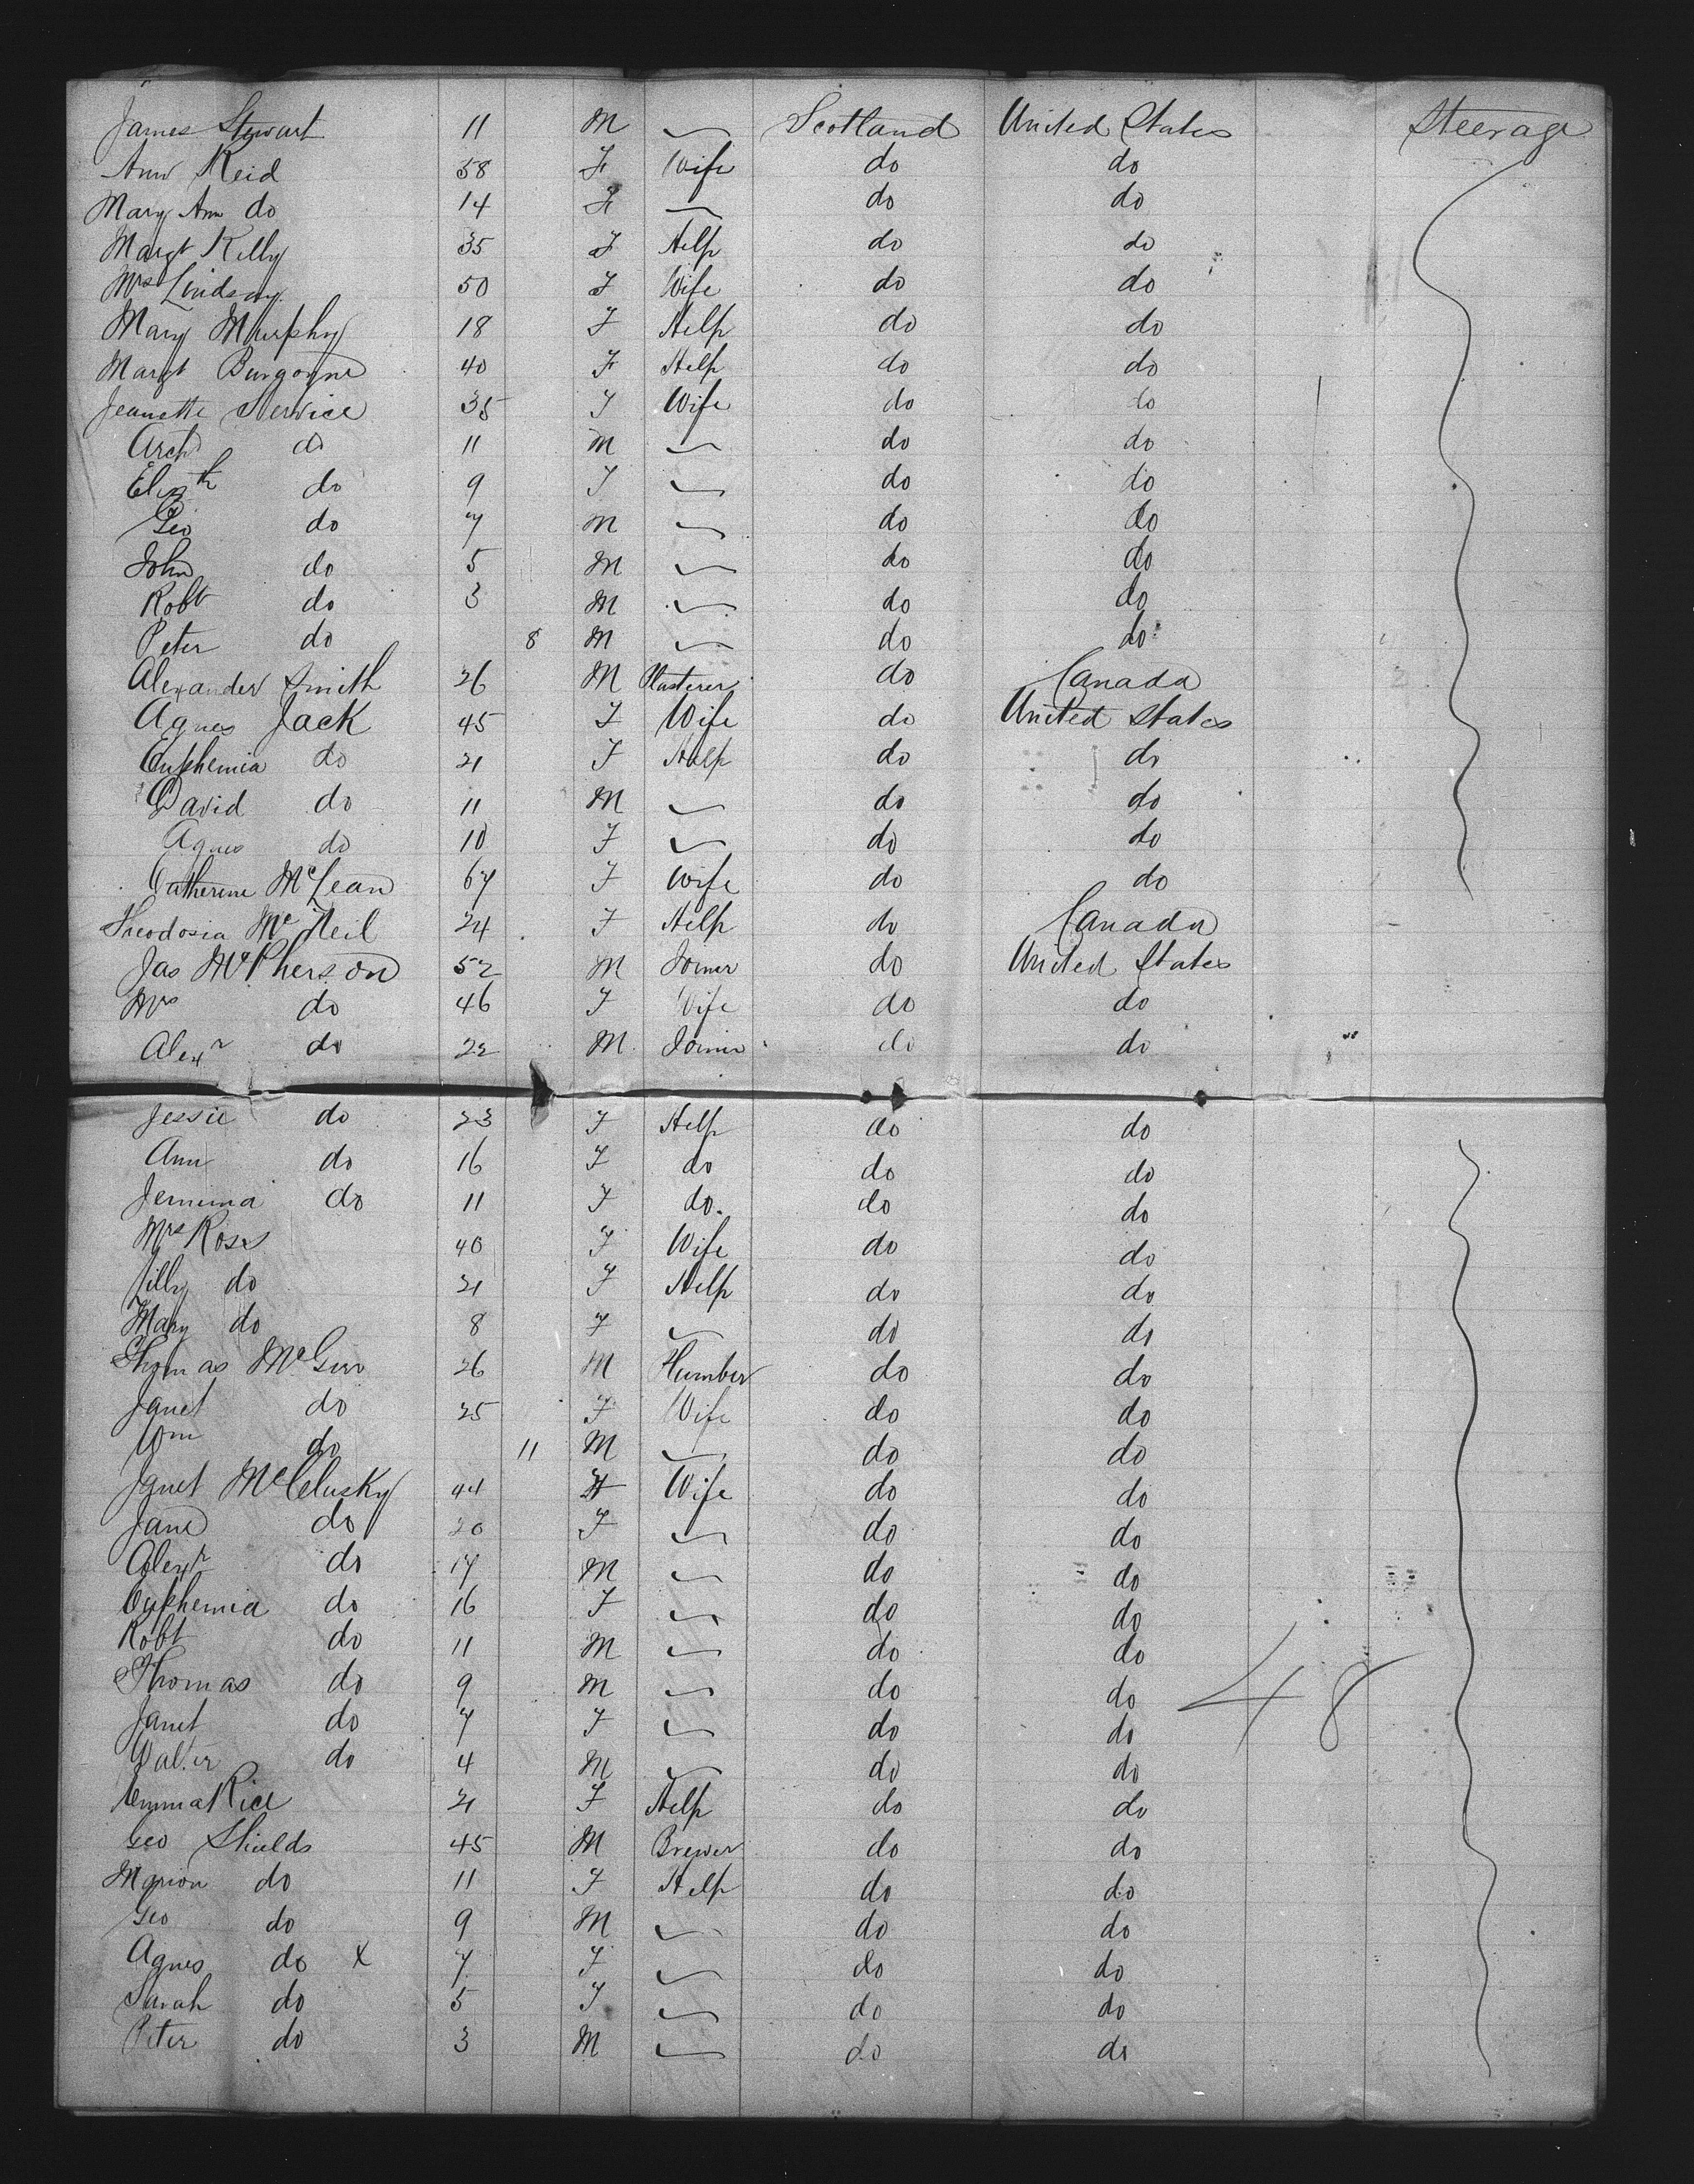 James Stewart 11 M Scotland United States Steerage
Ann Reid 58 F Wife do do
Mary Ann do 14 F do do
Margt Kelly 35 F Help do do
Mrs Lindsay 50 F Wife do do
Mary Murphy 18 F Help do do
Margt Burgoyne 40 F Help do do
Jeanette Service 35 F Wife do do
Arch do 11 M do do
Elizth do 9 F do do
Geo do 7 M do do
John do 5 M do do
Robt do 3 M do do
Peter do 8 M do do
Alexander Smith 26 M Plasterer do Canada
Agnes Jack 45 F Wife do United States
Euphemia do 21 F Help do do
David do 11 M do do
Agnes do 10 F do do
Catherine McLean 67 F Wife do do
Theodosia McNeil 24 F Help do Canada
Jas McPherson 52 M Joiner do United States
Mrs do 46 F Wife do do
Alexr do 22 M Joiner do do
Jessie do 23 F Help do do
Ann do 16 F do do do
Jemima do 11 F do. do do
Mrs Ross 40 F Wife do do
do 21 F Help do do
Mary do 8 F do do
Thomas 26 M Plumber do do
Janet do 25 F Wife do do
Wm do 11 M do do
Janet McClusky 44 F Wife do do
Jane do 20 F do do
Alexr do 17 M do do
Euphemia do 16 F do do
Robt do 11 M do do
Thomas do 9 M do do 48
Janet do 7 F do do
Walter do 4 M do do
Emma Rice 21 F Help do do
Geo Shields 45 M Brewer do do
Marion do 11 F Help do do
Geo do 9 M do do
Agnes do X 7 F do do
Sarah do 5 F do do
Peter do 3 M do do